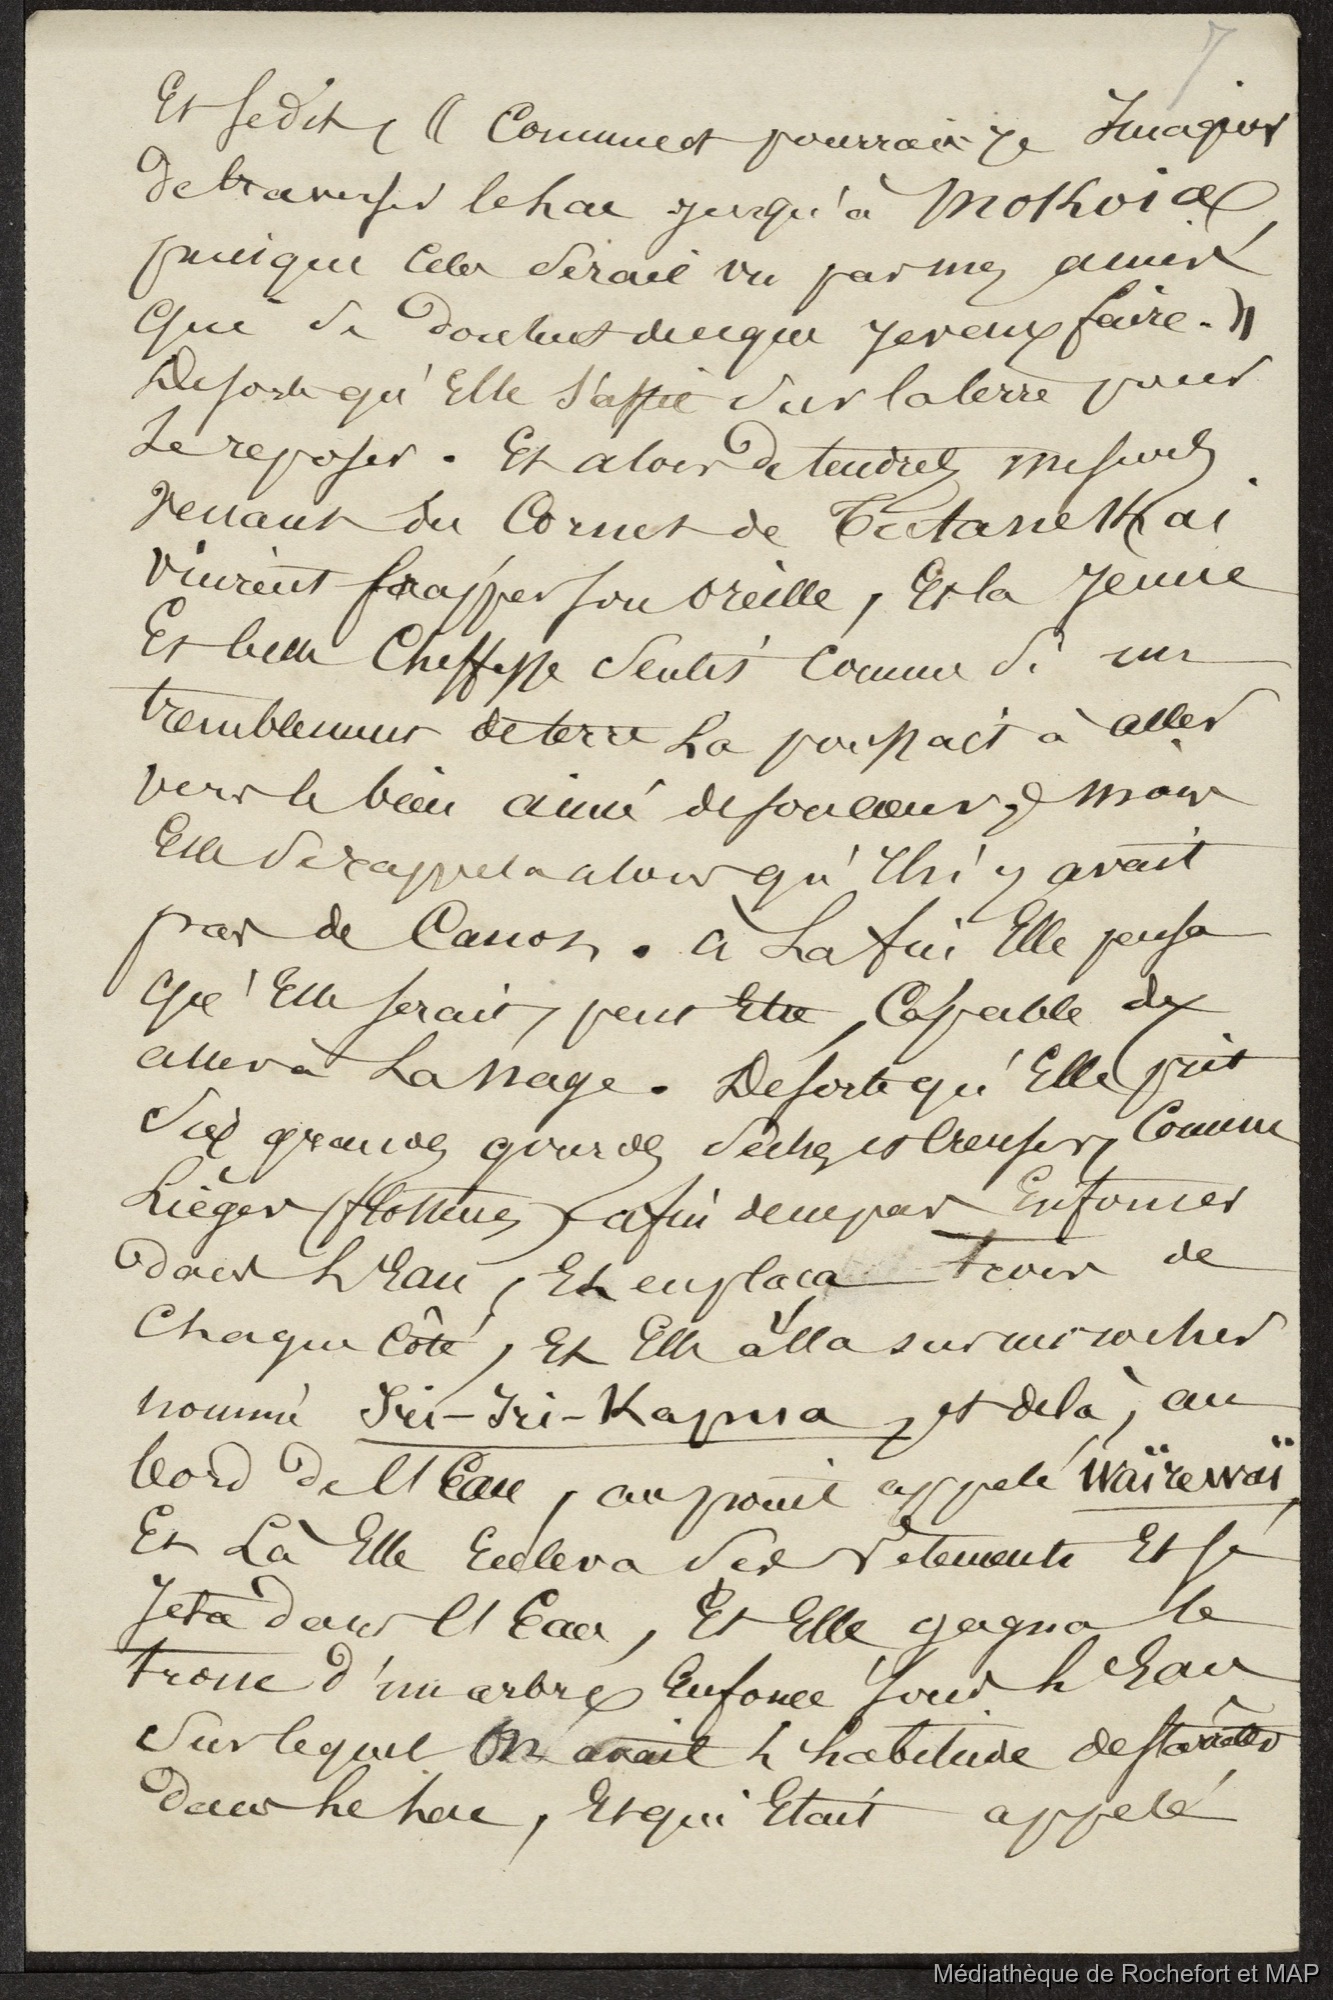 7
Et se dit, (( Comment pourrais je Imaginer
De traverser le lac jusqu'à Mokoia,
puisque cela serait vu par mes amis
Qui se doutent de ce que je veux faire. ))
De sorte qu'Elle s'assit sur la terre pour
Se reposer. Et alors de tendres mesures
Venant du Cornet de Tutanekai
Vinrent frapper son oreille, Et la jeune
Et belle Cheffesse sentit comme si un
tremblement de terre La poussait à aller
vers le bien aimé de son cœur, mais
Elle se rappela alors qu'Il n'y avait
pas de Canot. à La fin Elle pensa
Qu'Elle serait, peut Etre, Capable de
aller à La Nage. De sorte qu'Elle prit
Six grandes gourdes sèches et creuses, Comme
Lièges (flotteurs) afin de ne pas Enfoncer
dans L'Eau, Et en plaça trois de
Chaque Côté, Et Elle âlla sur un rocher
nommé Iri-Iri-Kapua, et de là, au
bord de l'Eau, au point appelé Waïrewaï,
Et Là Elle Enleva ses Vêtements Et se
Jeta dans l'Eau, Et Elle gagna le
tronc d'un arbre Enfoncé sous L'Eau
Sur lequel On avait L'habitude de
Dans Le Lac, Et qui Etait appelé
Médiathèque de Rochefort et MAP